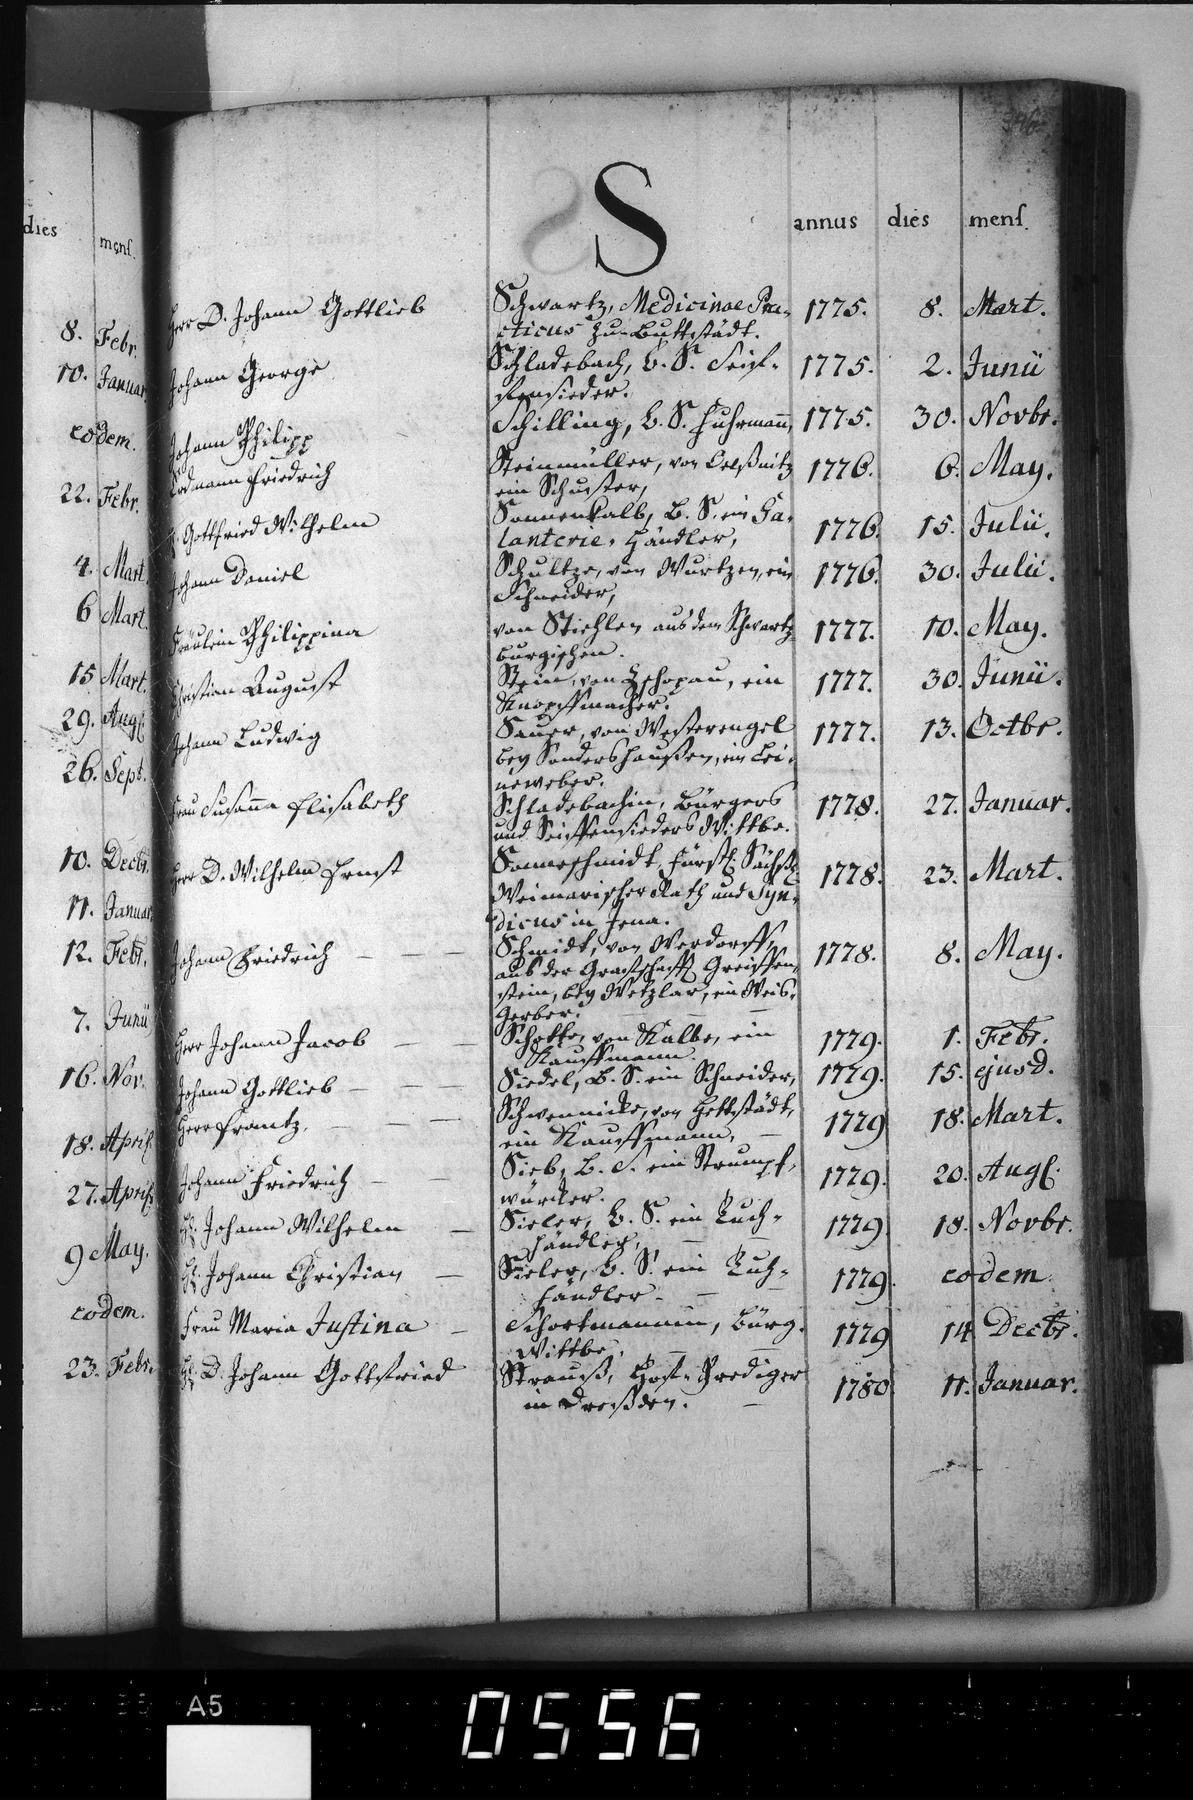 dies
mens.
8. Febr.
10. Januar.
eodem.
22. Febr.
4. Mart.
6 Mart.
15 Mart.
29. Aug.
26. Sept.
10. Decbr.
11. Januar.
12. Febr.
7. Junii
16. Nov.
18. April
27. April
9 May.
eodem.
23. Febr.
S
annus dies mens.
Herr D. Johann Gottlieb Schwartz, Medicinae Pra- 1775. 8. Mart.
cticus zu Buttstädt.
Johann George Schladebach, B. S. Seif- 1775. 2. Junii
fensieder.
Johann Philipp Schilling, B. S. Fuhrmann, 1775. 30. Novbr.
Erdmann Friedrich Steinmüller, von Oelßnitz 1776. 6. May.
ein Schuster,
H. Gottfried Wilhelm Sonnenkalb, B. S. ein Ga- 1776. 15. Julii.
lanterie-Händler,
Johann Daniel Schultze, von Wurtzen, ein 1776. 30. Julii.
Schneider,
Fräulein Philippina von Stiehlen aus dem Schwartz- 1777. 10. May.
burgischen.
Christian August Stein, von Zschopau, ein 1777. 30. Junii.
Knopffmacher.
Johann Ludwig Sauer, von Westerengel 1777. 13. Octbr.
bey Sondershaußen, ein Lei-
neweber.
Frau Susanna Elisabeth Schladebachin, Bürgers 1778. 27. Januar.
und Seiffensieders Wittbe.
Herr D. Wilhelm Ernst Sonneschmidt, Fürstl. Sächßl. 1778. 23. Mart.
Weimarischer Rath und Syn-
dicus in Jena.
Johann Friedrich — — — Schmidt, von Werdorff, 1778. 8. May.
aus der Graffschafft Greiffen-
stein, bey Wetzlar, ein Weis-
gerber.
Herr Johann Jacob — — Schotte, von Kalbe, ein 1779. 1. Febr.
Kauffmann.
Johann Gottlieb — — — Siedel, B. S. ein Schneider, 1779. 15. ejusd.
Herr Frantz, — — — Schwennicke, von Hettstädt, 1779 18. Mart.
ein Kauffmann, —
Johann Friedrich — — Sieb, B. S. ein Strumpf- 1779. 20. Aug.
würcker.
H. Johann Wilhelm — Sieler, B. S. ein Tuch- 1779 18. Novbr.
händler, — —
H. Johann Christian — Sieler, B. S. ein Tuch- 1779. eodem.
händler. — —
Frau Maria Justina — Schortmannin, Bürg. 1779 14 Decbr.
Wittbe. — —
H. D. Johann Gottfried Strauß, Hoff-Prediger 1780 11. Januar.
in Dreßden. —
A5
0556